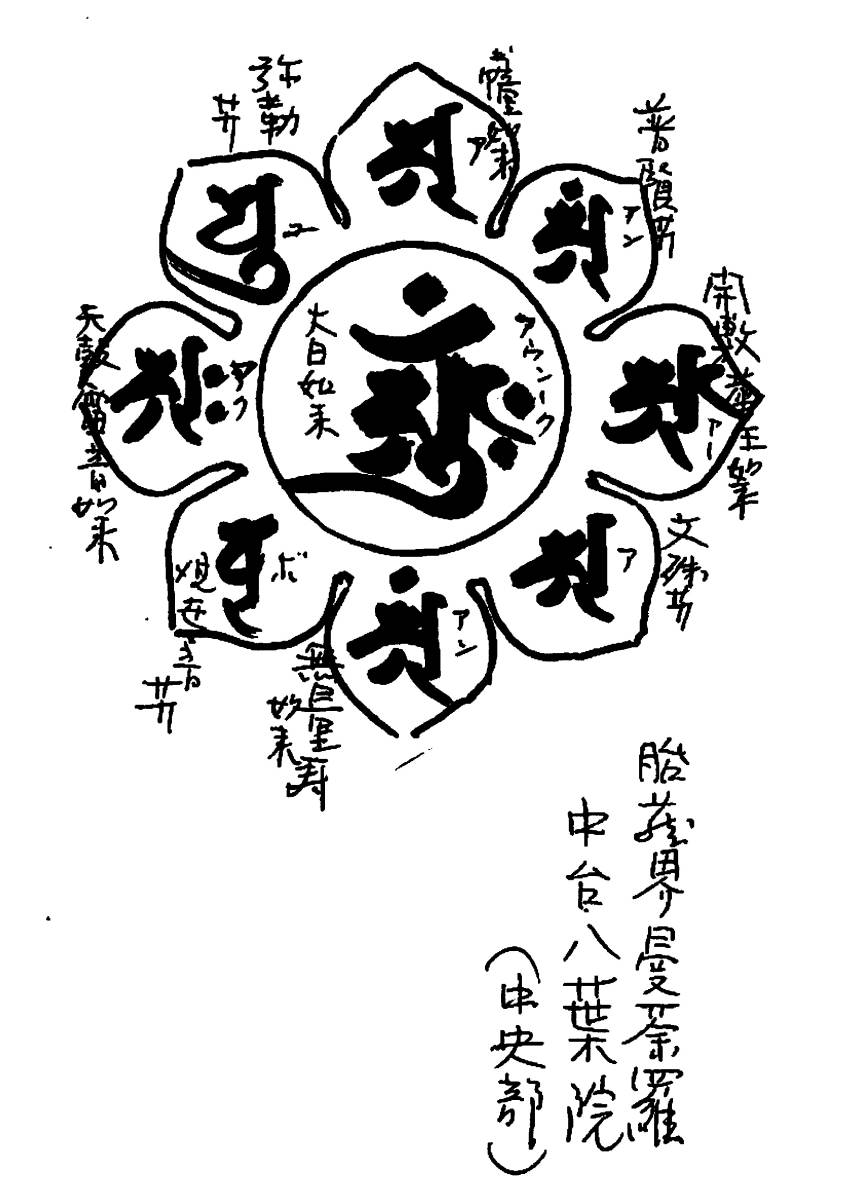 如来
𑖀
ア
普賢𦬇
𑖀𑖽
アン
開敷華王如来
𑖁
アー
文殊𦬇
𑖀
ア
無量寿
如来
𑖀𑖽
アン
観世音
𦬇
ボ
天鼓雷音如来
𑖀𑖾
アク
弥勒
𦬇
ユ
大日如来
アウンーク
胎蔵界曼荼羅
中台八葉院
(中央部)